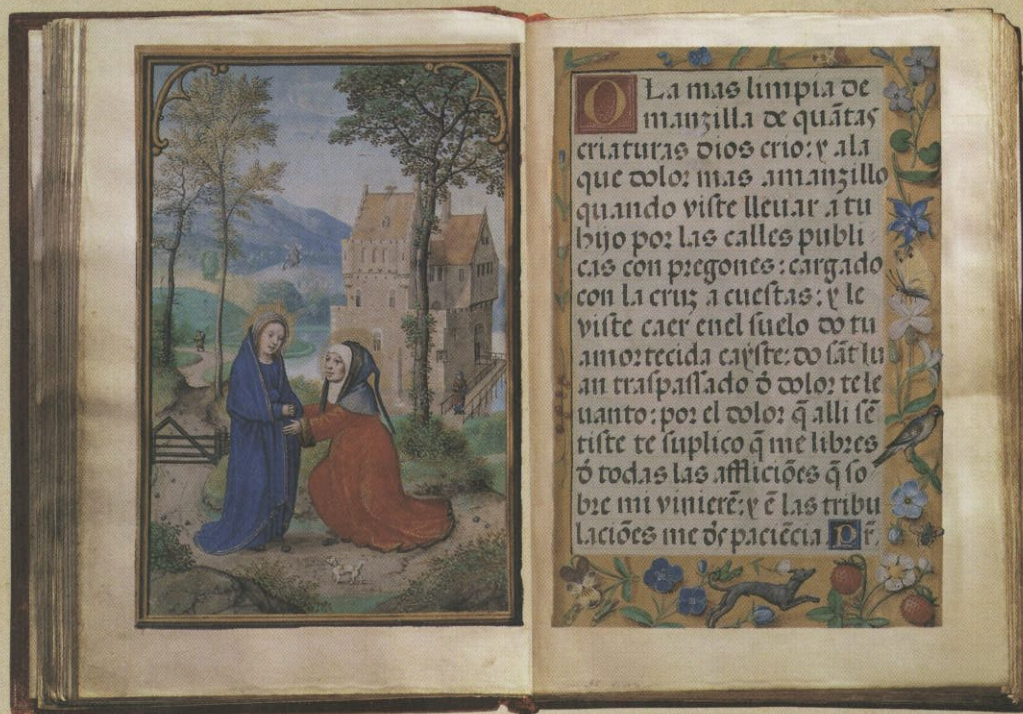 O La mas limpia de
manzilla de quãtas
criaturas dios crio: y ala
que dolor mas amanzillo
quando viste lleuar a tu
hijo por las calles publi
cas con pregones: cargado
con la cruz a cuestas: y le
viste caer enel suelo do tu
amortecida cayste: do sãt iu
an traspassado õ dolor te le
uanto: por el dolor q̃ alli sẽ
tiste te suplico q̃ me libres
õ todas las affliciões q̃ so
bre mi vinierẽ: y ẽ las tribu
laciões me des paciẽcia pr̃.